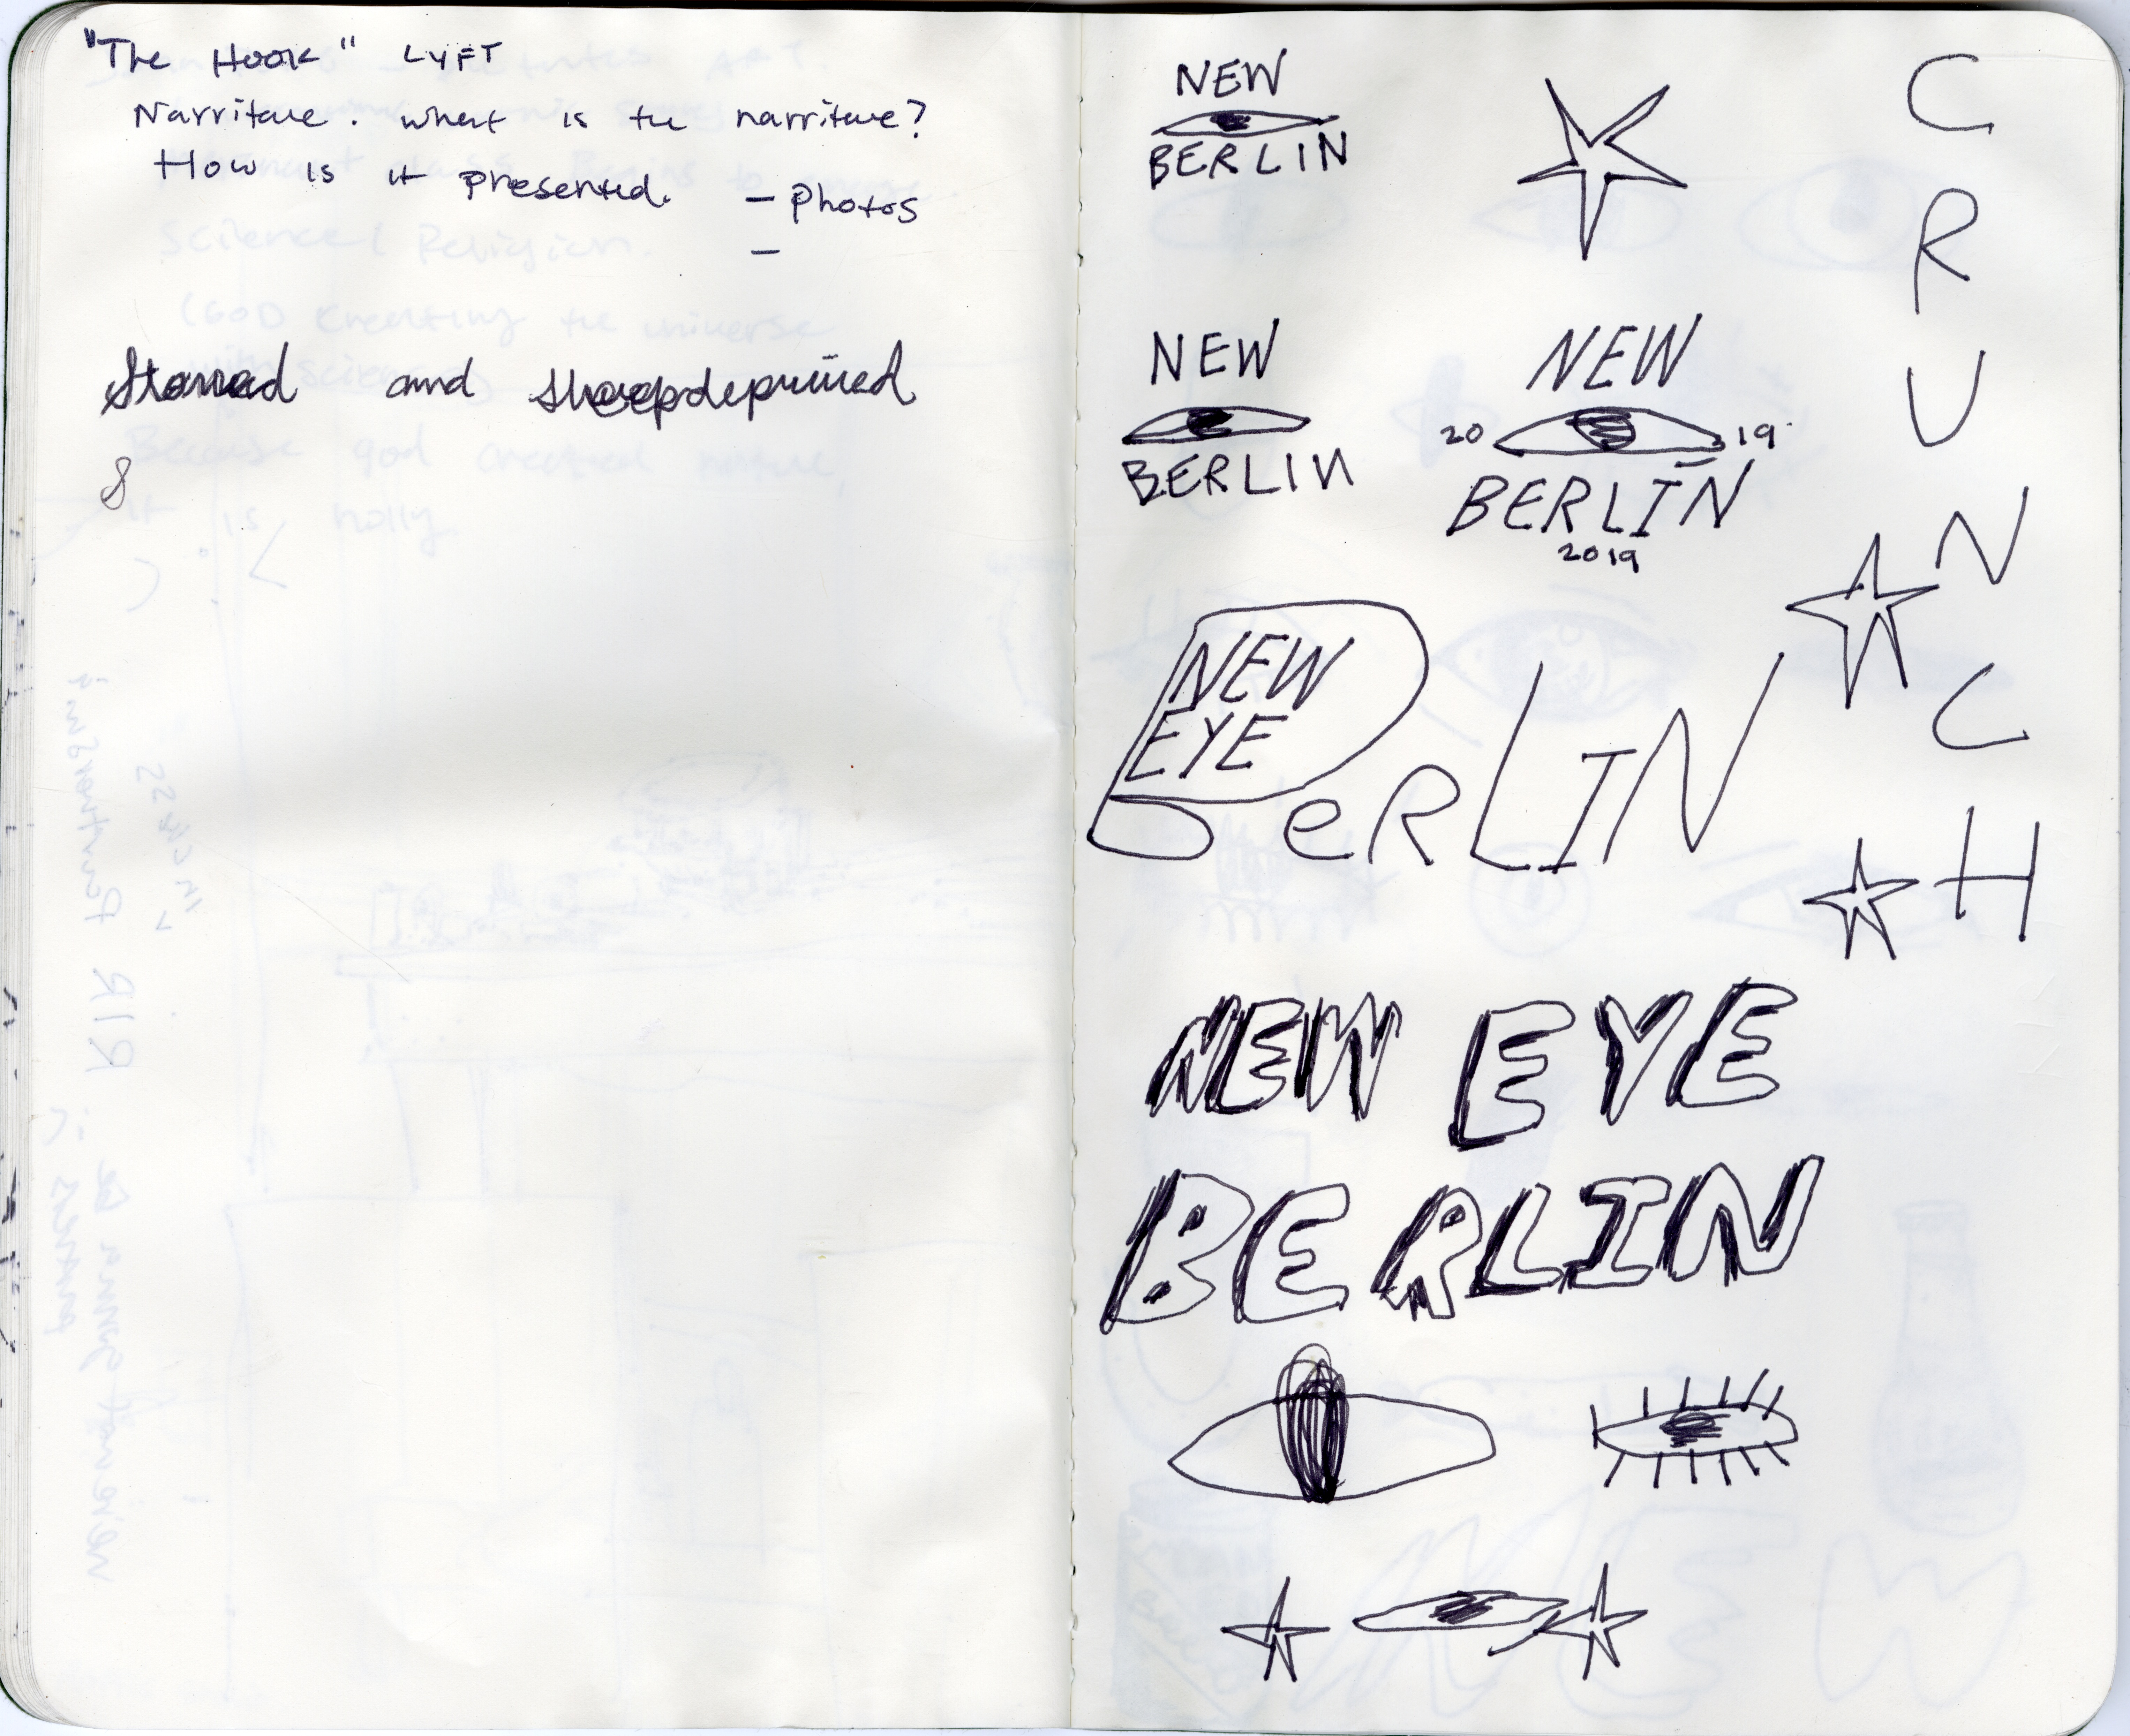 "The Hook" LYFT
Narritave. what is the narritave?
How is it presented. - Photos
-
Starved and sleepdeprived
8
NEW
BERLIN
NEW
BERLIN
NEW
20 19
BERLIN
2019
NEW
EYE
BeRLIN
NEW EYE
BERLIN
C
R
U
N
C
H